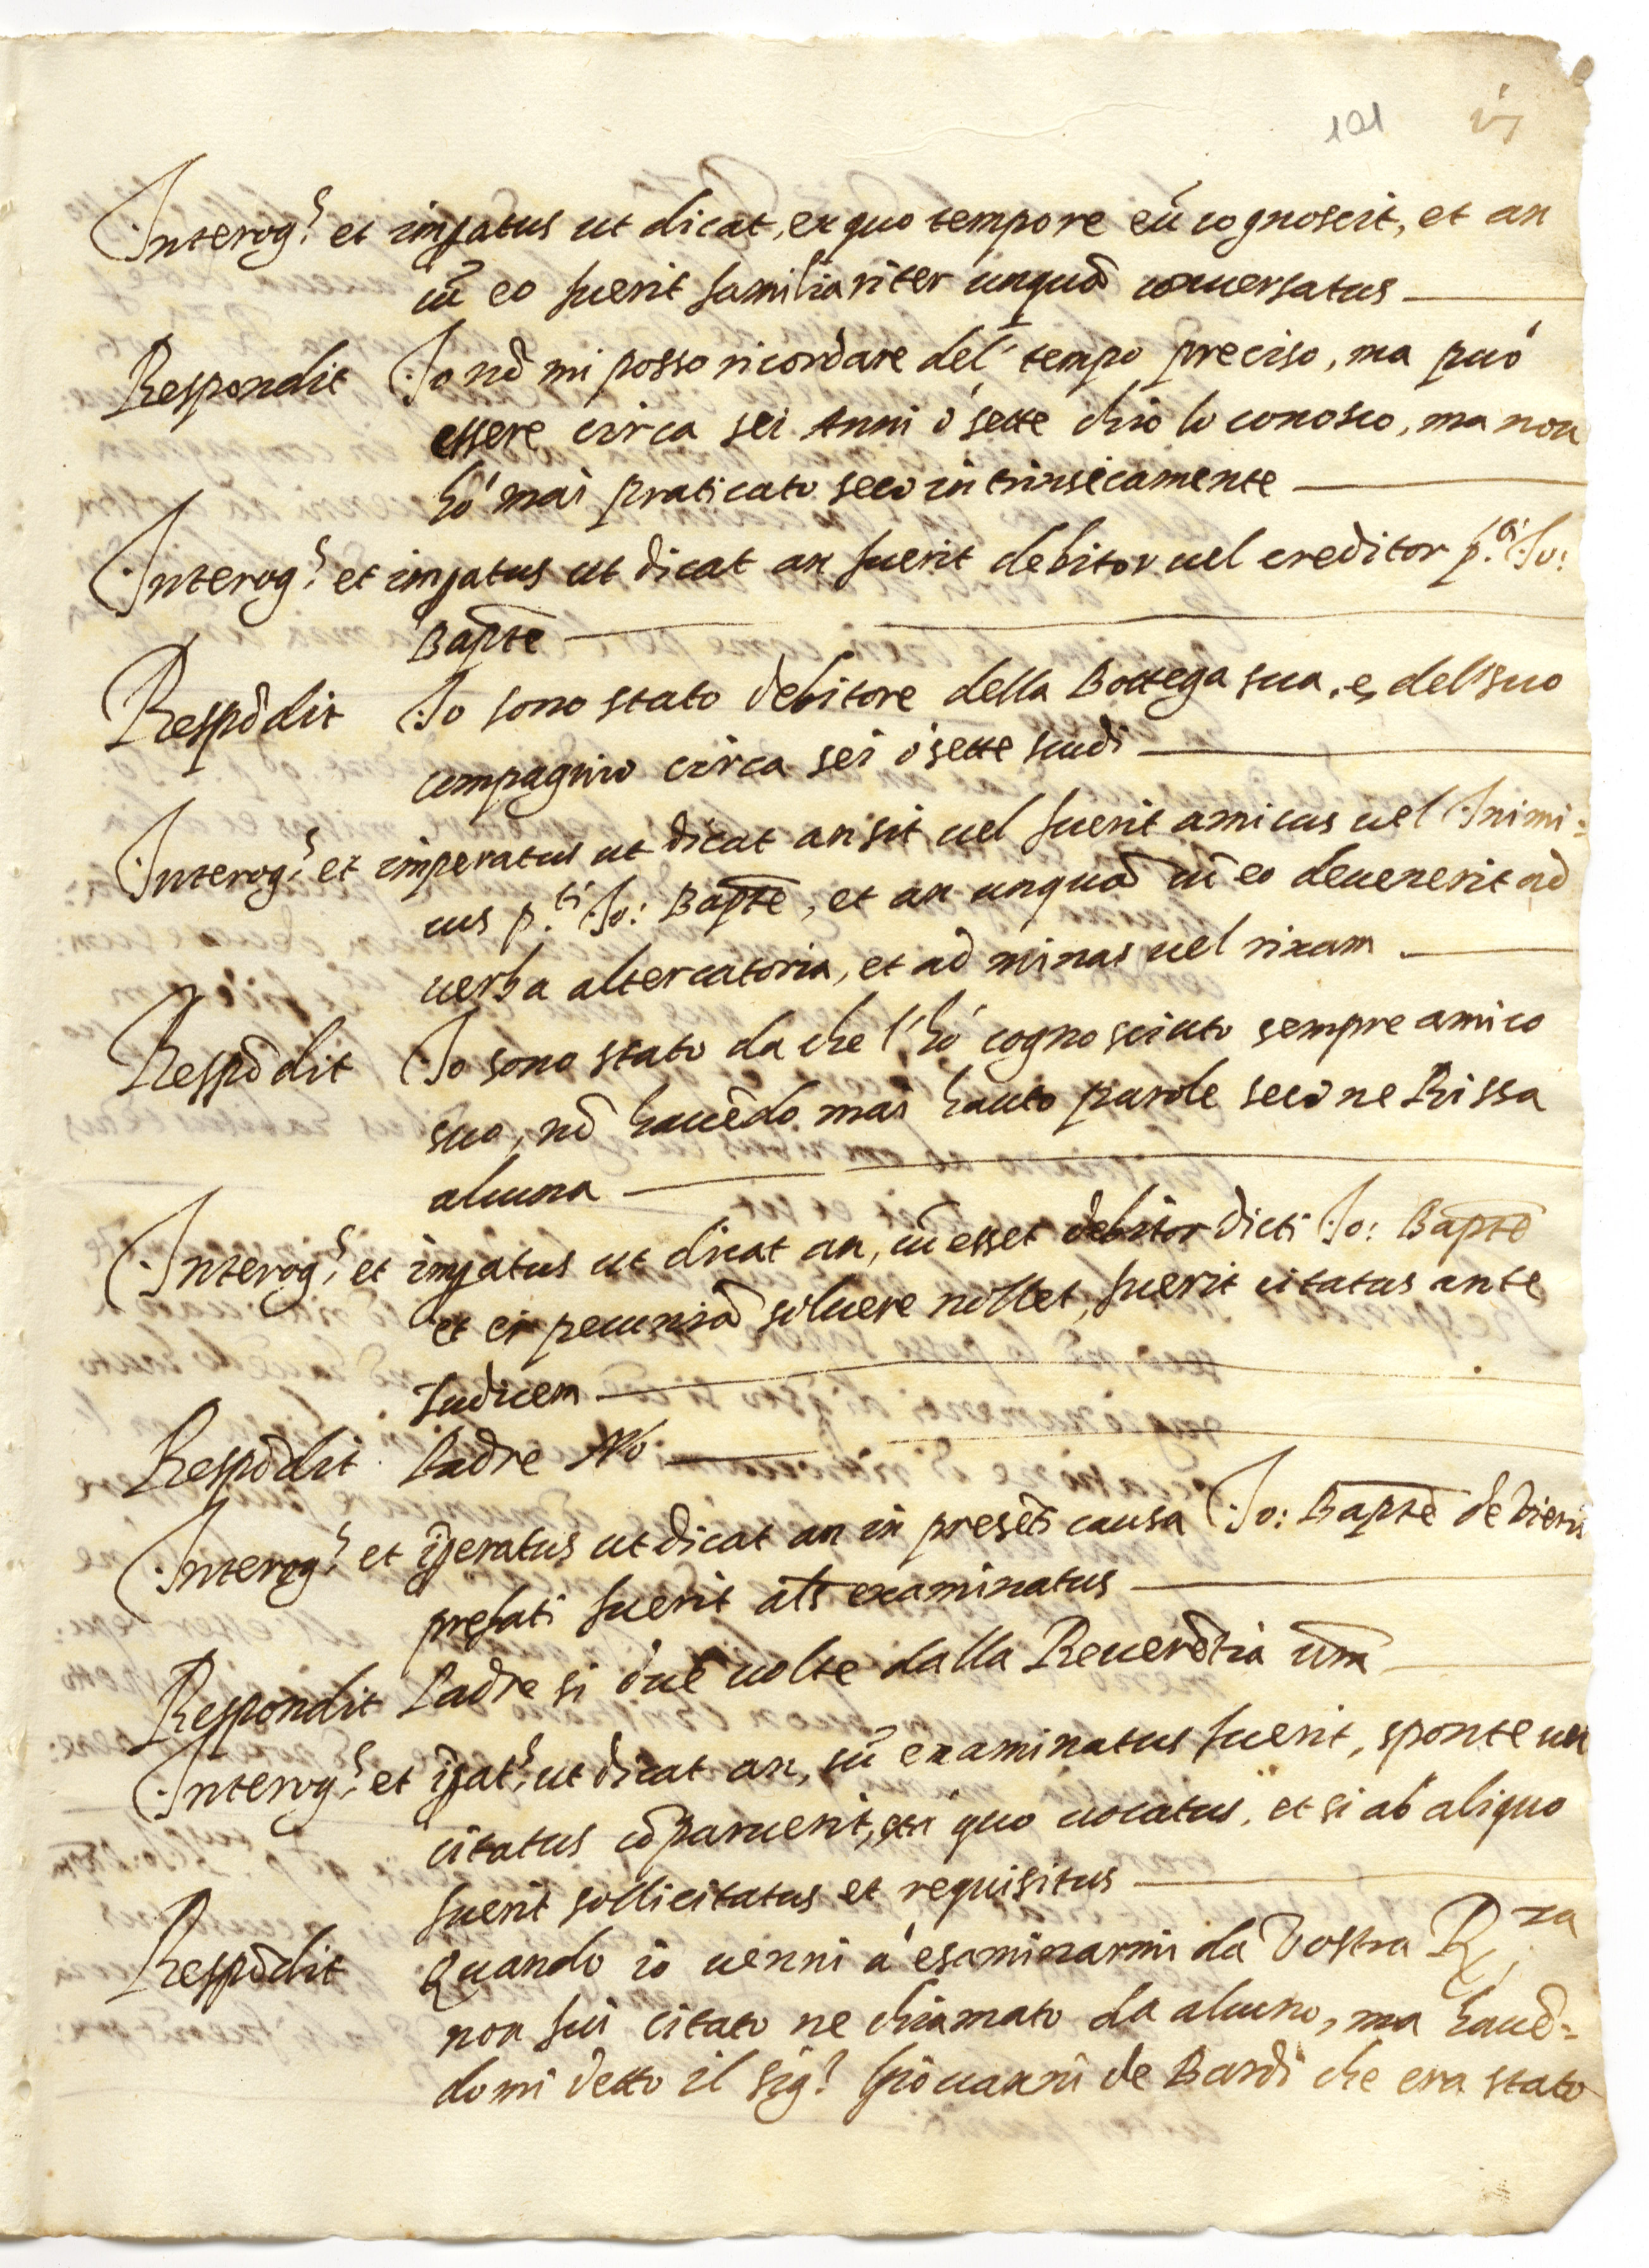 101
Interog.s et imp̱atus ut dicat, ex quo tempore eū cognoscit, et an
cū eo fuerit familiariter unquā conuersatus
Respondit Io nō mi posso ricordare del tempo preciso, ma può
essere circa sei Anni ò sette ch'io lo conosco, ma non
hò mai praticato seco intrinsicamente
Interog.s et imp̱atus ut dicat an fuerit debitor uel creditor p.ti Io:
Bapt̄e
Respōdit Io sono stato debitore della Bottega sua, e, del suo
compagnio circa sei ò sette scudi
Interog.s et imperatus ut dicat an sit uel fuerit amicus uel Inimi:
cus p.ti Io: Bapt̄e, et an unquā cū eo deuenerit ad
uerba altercatoria, et ad minas uel rixam
Respōdit Io sono stato da che l'hò cognosciuto sempre amico
suo, nō hauēdo mai hauto parole seco ne Rissa
alcuna
Interog.s et imp̱atus ut dicat an, cū esset debitor dicti Io: Bapt̄e
et ei pecuniā soluere nollet, fuerit citatus ante
Iudicem
Respōdit Padre Nò
Interog.s et īp̱eratus ut dicat an in presēti causa Io: Bapt̄e de Vieri
prefati fuerit al̄s examinatus
Respondit Padre si due uolte dalla Reuerētia ur̄a
Interog.s et īp̱at.s ut dicat an, cū examinatus fuerit, sponte uel
citatus cōparuerit, et à quo uocatus, et si ab aliquo
fuerit sollicitatus et requisitus
Respōdit Quando io uenni à esaminarmi da Vostra R.za
non fui citato ne chiamato da alcuno, ma hauē=
domi detto il Sig.r Giouanni de Bardi che era stato